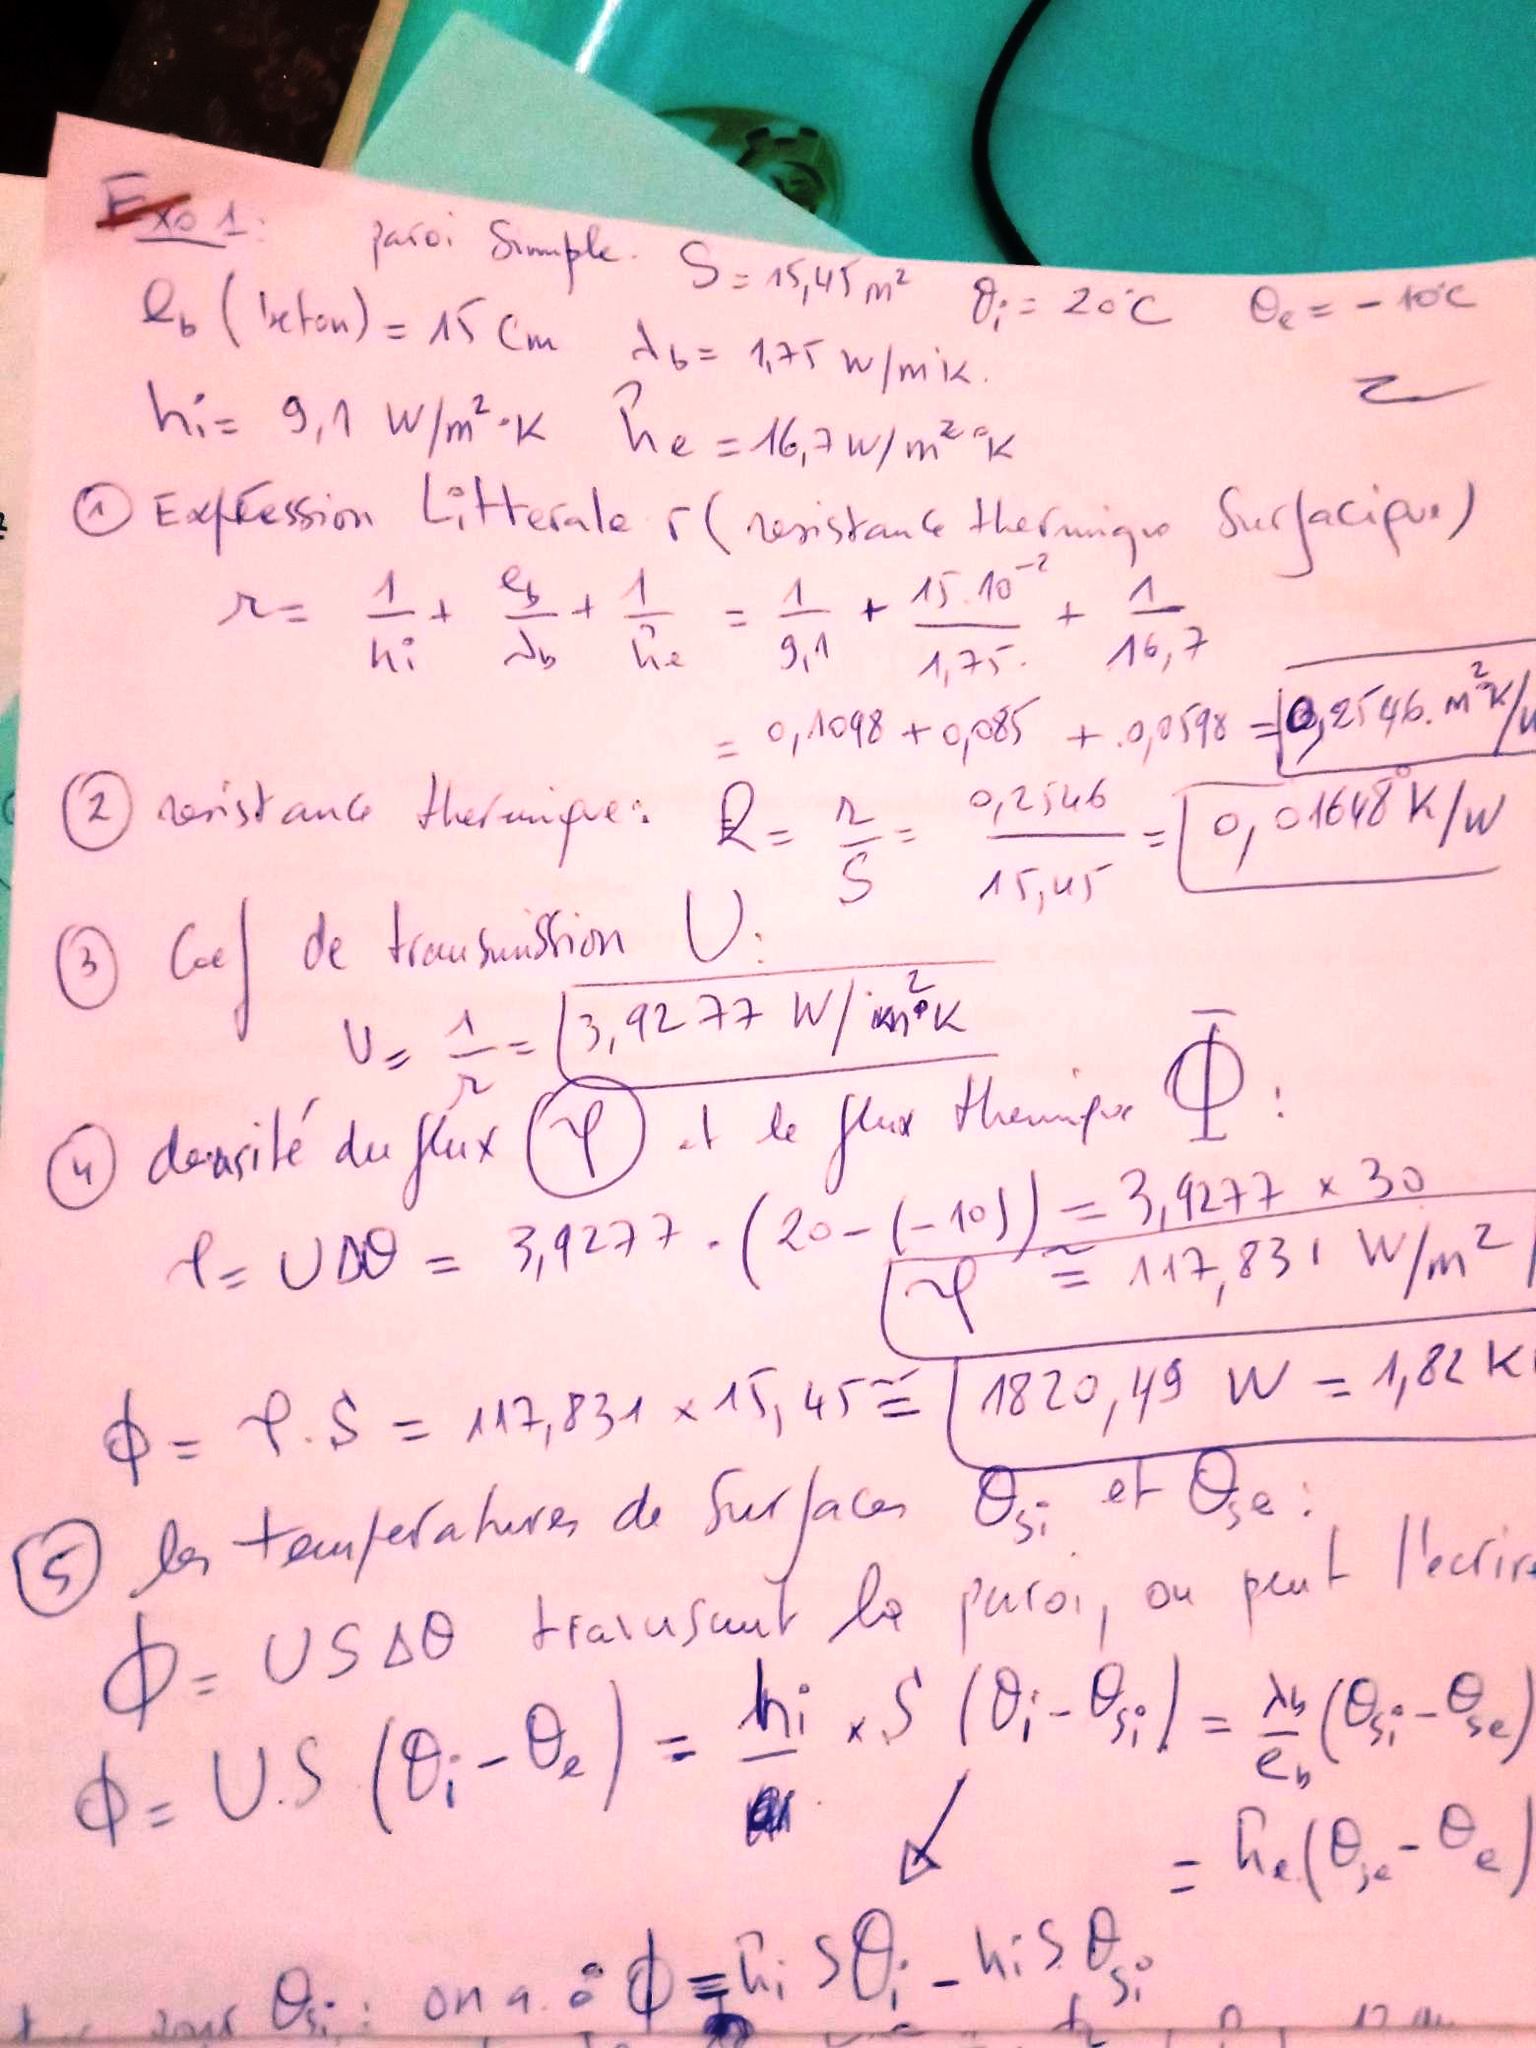 Exo 1: paroi Simple. S = 15,45 m² θi = 20°C θe = -10°C
eb (beton) = 15 Cm λb = 1,75 W/m°K.
hi = 9,1 W/m²·K he = 16,7 W/m²°K
① Expression Litterale r (resistance thermique Surfacique)
r = 1/hi + eb/λb + 1/he = 1/9,1 + 15.10⁻²/1,75 + 1/16,7
= 0,1098 + 0,085 + 0,0598 = 0,2546. m²°K/W
② resistance thermique: R = r/S = 0,2546/15,45 = 0,01648°K/W
③ Coef de transmission U:
U = 1/r = 3,9277 W/m²°K
④ densité du flux φ et le flux thermique Φ:
φ = UΔθ = 3,9277 . (20-(-10)) = 3,9277 x 30
φ ≅ 117,831 W/m²
ϕ = φ.S = 117,831 x 15,45 ≅ 1820,49 W = 1,82 K
⑤ les températures de Surfaces θsi et θse:
ϕ = USΔθ la paroi, on peut l'ecrire
ϕ = U.S (θi - θe) = hi x S (θi - θsi) = λb/eb (θsi - θse)
= he (θse - θe)
θsi: on a : ϕ = hi Sθi - hi S θsi